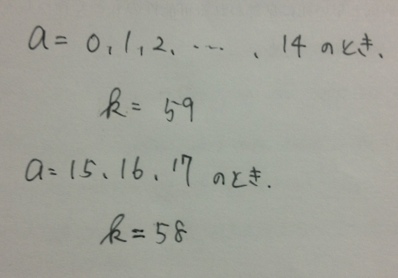 a = 0, 1, 2, …, 14 のとき、
k = 59
a = 15、16、17 のとき.
k = 58